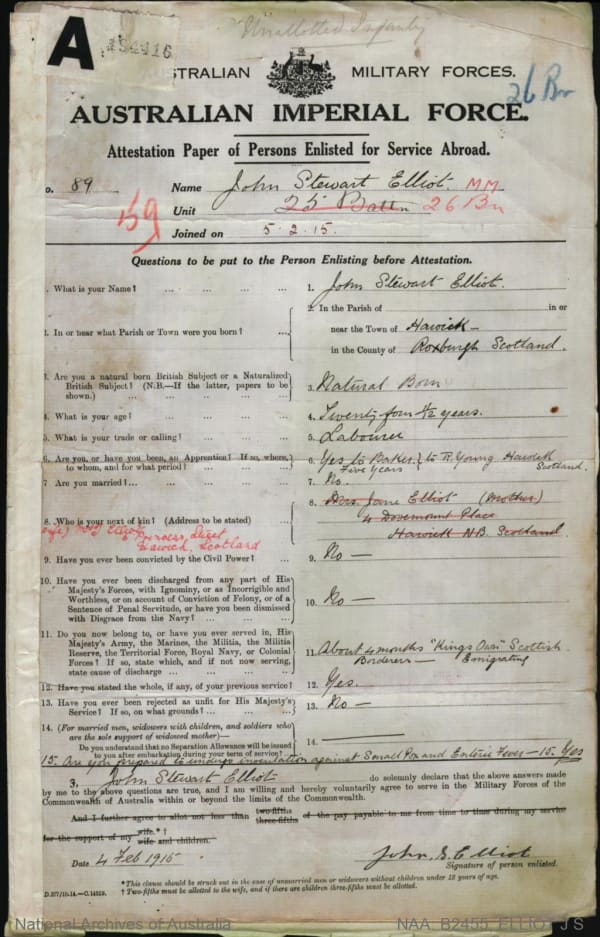 Unallotted Infantry
A
AUSTRALIAN MILITARY FORCES.
26 Bn
AUSTRALIAN IMPERIAL FORCE.
Attestation Paper of Persons Enlisted for Service Abroad.
o. 89
Name John Stewart Elliot. MM
159
Unit 25 Batt'n 26 Bn
Joined on 5.2.15.
Questions to be put to the Person Enlisting before Attestation.
. What is your Name? ... ... ... ... 1. John Stewart Elliot.
2. In or near what Parish or Town were you born? ...
2. In the Parish of in or
near the Town of Hawick
in the County of Roxburgh Scotland.
3. Are you a natural born British Subject or a Naturalized
British Subject? (N.B.—If the latter, papers to be
shown.) ... ... ... ...
3. Natural Born
4. What is your age? ... ... ... 4. Twenty four 1/2 years.
5. What is your trade or calling? ... ... ... 5. Labourer
6. Are you, or have you been, an Apprentice? If so, where,
to whom, and for what period? ... ... ...
6. Yes to Baker. Five Years } to R. Young Hawick Scotland.
7. Are you married? ... ... ... ... 7. No.
8. Who is your next of kin? (Address to be stated) ...
8. Mrs. Jane Elliot (Mother)
4 Dovemount Place
Hawick N.B. Scotland
(wife) Mrs Elliot
Street
Hawick, Scotland
9. Have you ever been convicted by the Civil Power? ... 9. No —
10. Have you ever been discharged from any part of His
Majesty's Forces, with Ignominy, or as Incorrigible and
Worthless, or on account of Conviction of Felony, or of a
Sentence of Penal Servitude, or have you been dismissed
with Disgrace from the Navy? ... ... ...
10. No —
11. Do you now belong to, or have you ever served in, His
Majesty's Army, the Marines, the Militia, the Militia
Reserve, the Territorial Force, Royal Navy, or Colonial
Forces? If so, state which, and if not now serving,
state cause of discharge ... ... ...
11. About 4 months "Kings Own" Scottish
Borderers — Emigrating
12. Have you stated the whole, if any, of your previous service? 12. Yes.
13. Have you ever been rejected as unfit for His Majesty's
Service? If so, on what grounds? ... ... ...
13. No —
14. (For married men, widowers with children, and soldiers who
are the sole support of widowed mother)—
Do you understand that no Separation Allowance will be issued
to you after embarkation during your term of service?
14.
15. Are you prepared to undergo inoculation against Small Pox and Enteric Fever — 15. Yes
I, John Stewart Elliot do solemnly declare that the above answers made
by me to the above questions are true, and I am willing and hereby voluntarily agree to serve in the Military Forces of the
Commonwealth of Australia within or beyond the limits of the Commonwealth.
And I further agree to allot not less than two-fifths three-fifths of the pay payable to me from time to time during my service
for the support of my wife.*† wife and children.
Date 4 Feb 1915
John. S. Elliot
Signature of person enlisted.
* This clause should be struck out in the case of unmarried men or widowers without children under 18 years of age.
† Two-fifths must be allotted to the wife, and if there are children three-fifths must be allotted.
National Archives of Australia
NAA B2455 ELLIOT J S